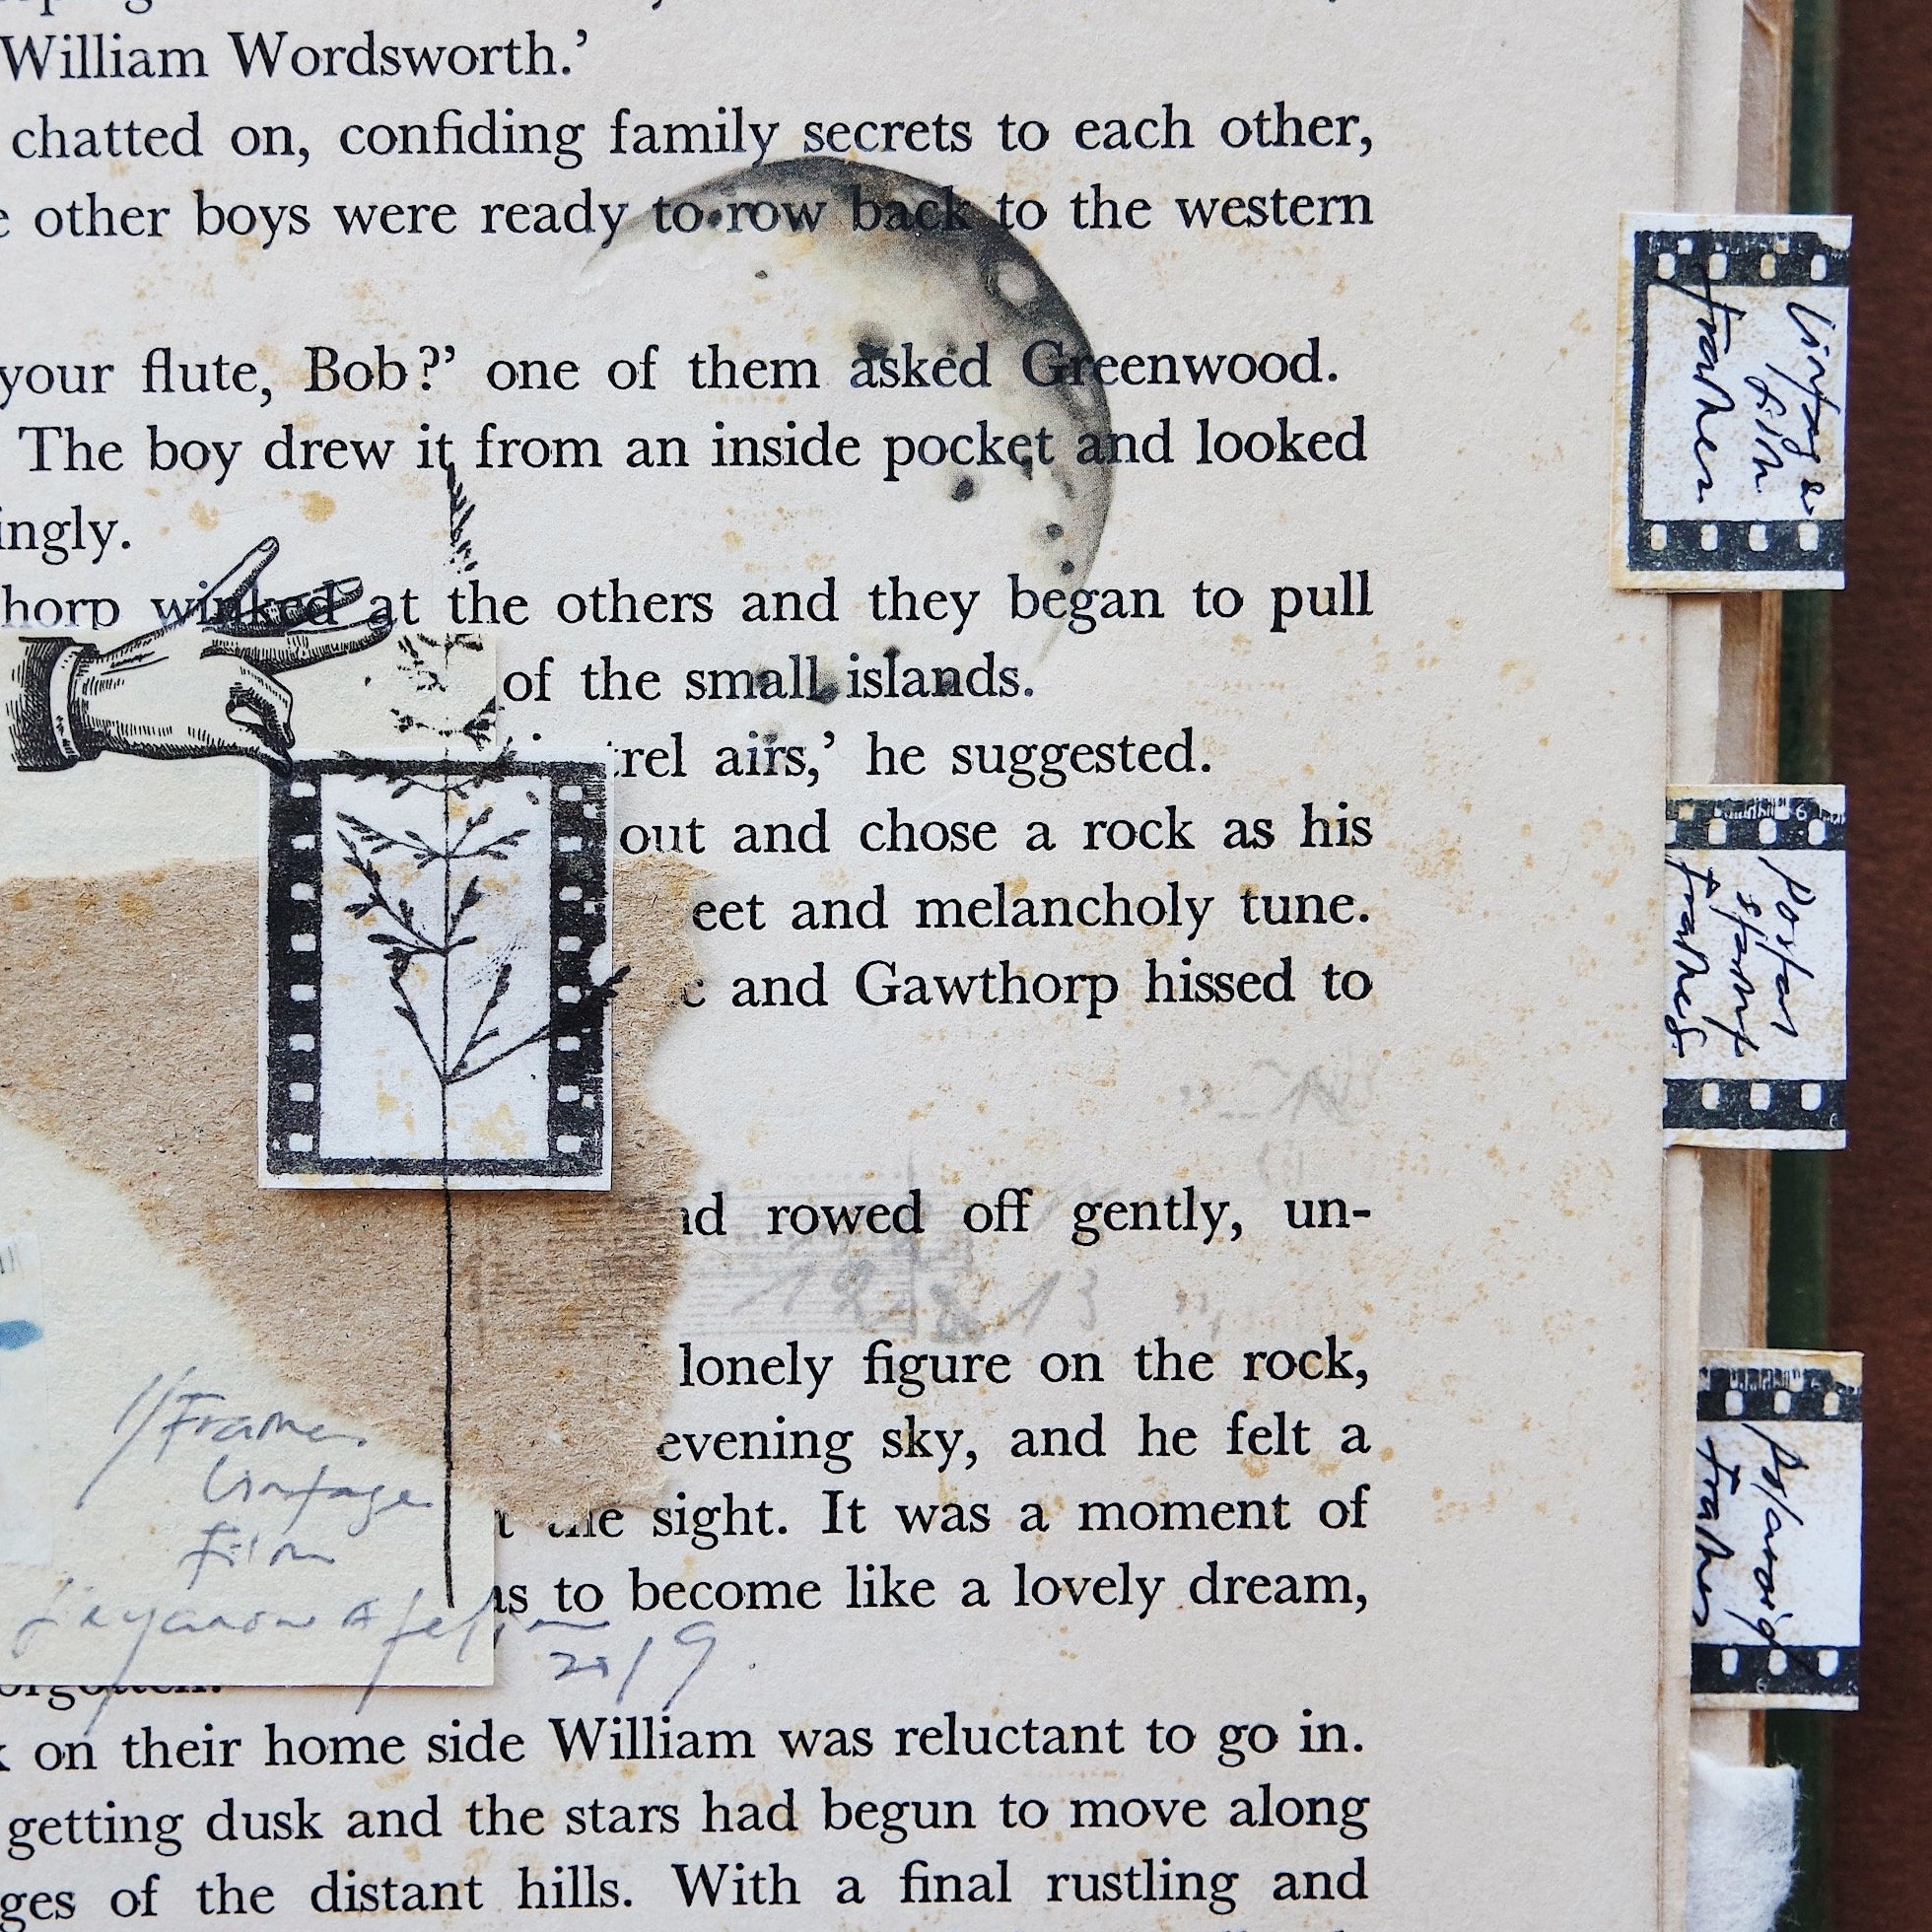 William Wordsworth.’
chatted on, confiding family secrets to each other,
other boys were ready to row back to the western
your flute, Bob?’ one of them asked Greenwood.
The boy drew it from an inside pocket and looked
ingly.
horp winked at the others and they began to pull
of the small islands.
trel airs,’ he suggested.
out and chose a rock as his
eet and melancholy tune.
c and Gawthorp hissed to
nd rowed off gently, un-
12 8 13
lonely figure on the rock,
evening sky, and he felt a
t the sight. It was a moment of
as to become like a lovely dream,
orgotten.
k on their home side William was reluctant to go in.
getting dusk and the stars had begun to move along
ges of the distant hills. With a final rustling and
//Frames
Vintage
Film
2019
Vintage
film
frames
Postar
stamp
frames
Polaroid
frames